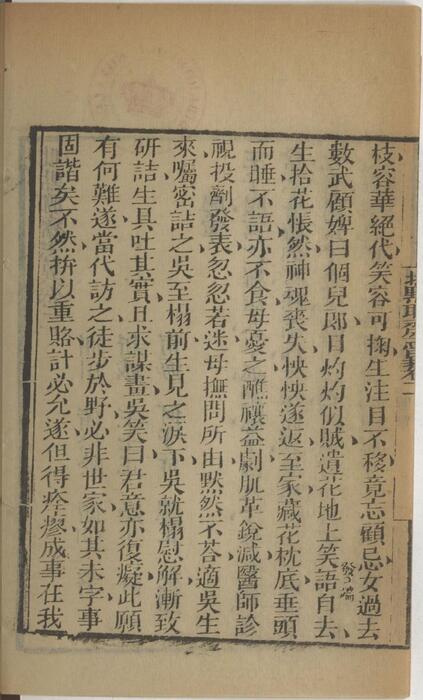 枝容華絕代笑容可掬生注目不移竟忘顧忌女過去
數武顧婢曰個兒郎目灼灼似賊遺花地上笑語自去
發端
生拾花悵然神魂喪失怏怏遂返至家藏花枕底垂頭
而睡不語亦不食母憂之醮禳益劇肌革銳減醫師診
視投劑發表忽忽若迷母撫問所由默然不答適吳生
來囑密詰之吳至榻前生見之淚下吳就榻慰解漸致
研詰生具吐其實且求謀畫吳笑曰君意亦復癡此願
有何難遂當代訪之徒步於野必非世家如其未字事
固諧矣不然拚以重賂計必允遂但得痊瘳成事在我